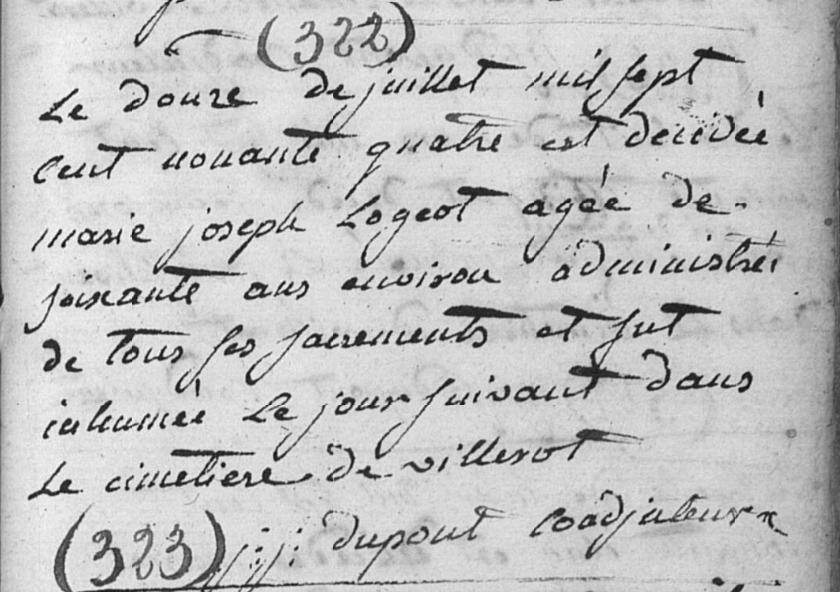 (322)
Le douze de juillet mil sept
cent nonante quatre est decédée
marie joseph Logeot agée de
soixante ans environ administrée
de tous ses sacrements et fut
inhumée Le jour suivant dans
Le cimetiere de villerot
(323) j: j: dupont coadjuteur